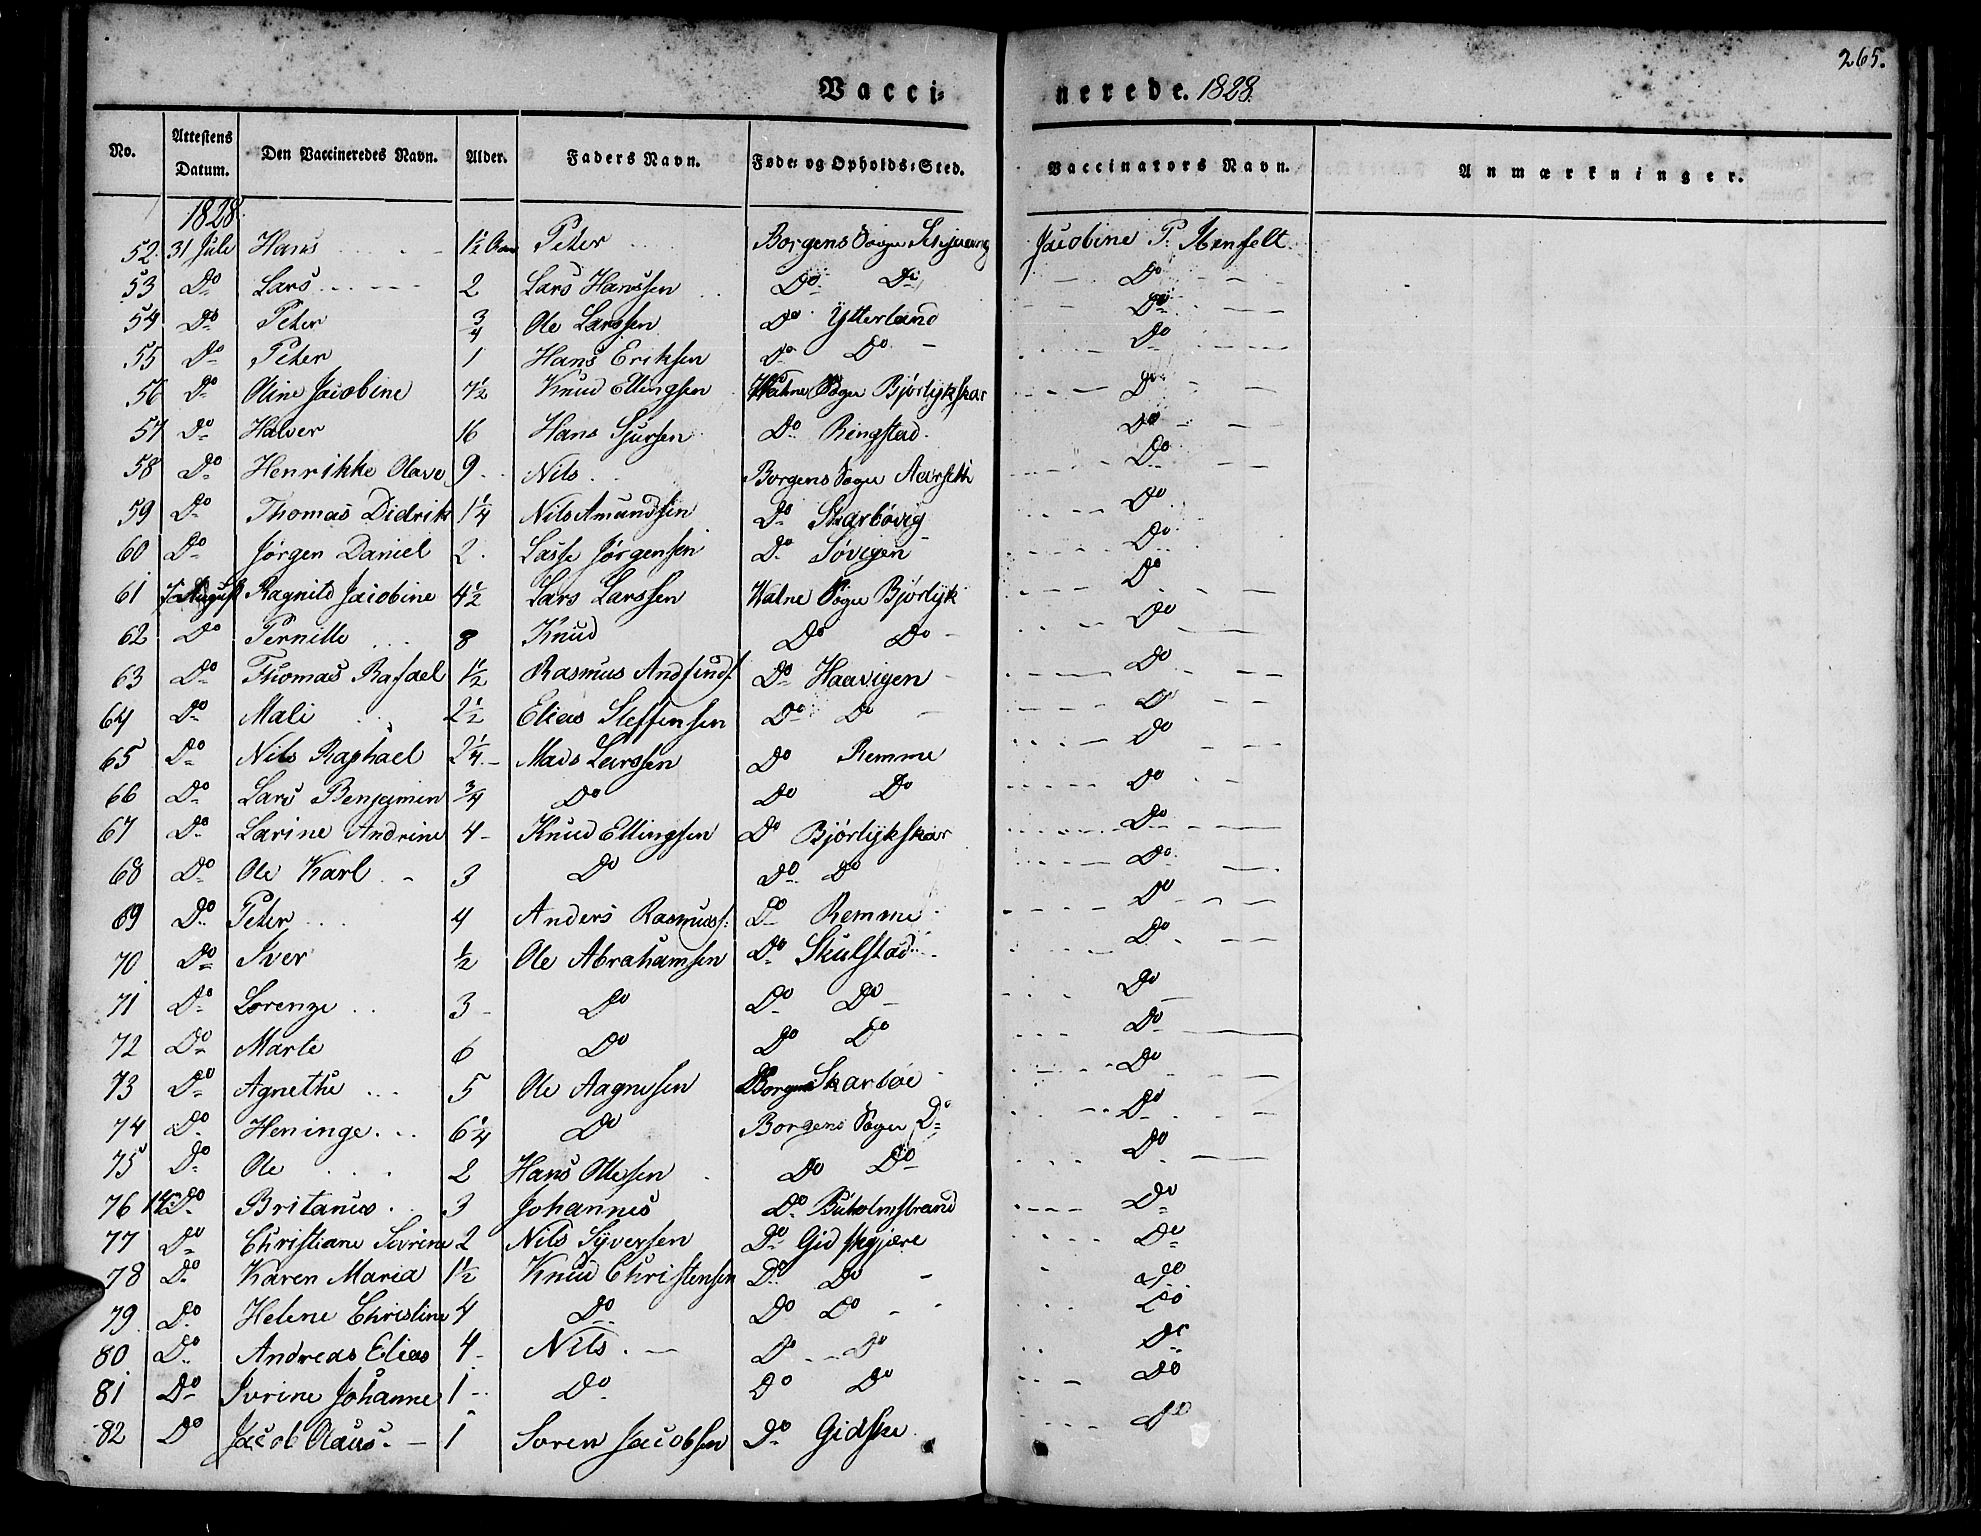 265.
Vacci- nerede. 1828.
No. Attestens Datum. Den Vaccineredes Navn. Alder. Faders Navn. Føde- og Opholds-Sted. Vaccinators Navn. Anmærkninger.
1828.
52 31 Jule Hans 1½ Peter Borgens Sogn Jacobine P.
53 Do Lars 2 Lars Hanssen Do Do Do
54 Do Peter ¾ Ole Larssen Do Ytterland Do
55 Do Peter 1 Hans Eriksen Do Do Do
56 Do Oline Jacobine 7½ Knud Ellingsen Sogn Bjørlykskar Do
57 Do Halver 16 Hans Sjursen Do Ringstad Do
58 Do Henrikke Olave 9 Nils Borgens Sogn Aarseth Do
59 Do Thomas Didrik 1¼ Nils Amundsen Do Skarbövig Do
60 Do Jørgen Daniel 2 Lasse Jørgensen Do Sövigen Do
61 7 August Ragnild Jacobine 4½ Lars Larssen Vatne Sogn Bjørlyk Do
62 Do Pernille 8 Knud Do Do Do
63 Do Thomas Rafael 1½ Rasmus Do Haavigen Do
64 Do Mali 2½ Elias Steffensen Do Do Do
65 Do Nils Raphael 2¼ Mads Larssen Do Remme Do
66 Do Lars Benjamin ¾ Do Do Do Do
67 Do Larine Andrine 4 Knud Ellingsen Do Bjørlykskar Do
68 Do Ole Karl 3 Do Do Do Do
69 Do Peter 4 Anders Rasmuss: Do Remme Do
70 Do Iver ½ Ole Abrahamsen Do Skulstad Do
71 Do Lorenze 3 Do Do Do Do
72 Do Marte 6 Do Do Do Do
73 Do Agnethe 5 Ole Aagnesen Borgens Skarböe Do
74 Do Heninge 6¼ Do Borgens Sogn Do Do
75 Do Ole 2 Hans Do Do Do
76 14 Do Britanus 3 Johannes Do Buholmstrand Do
77 Do Christiane Sivrine 2 Nils Syversen Do Do
78 Do Karen Maria 1½ Knud Christensen Do Do Do
79 Do Helene Christine 4 Do Do Do Do
80 Do Andreas Elias 4 Nils Do Do Do
81 Do Ivrine Johanne 1 Do Do Do Do
82 Do Jacob Olaus 1 Soren Jacobsen Do Gidske Do